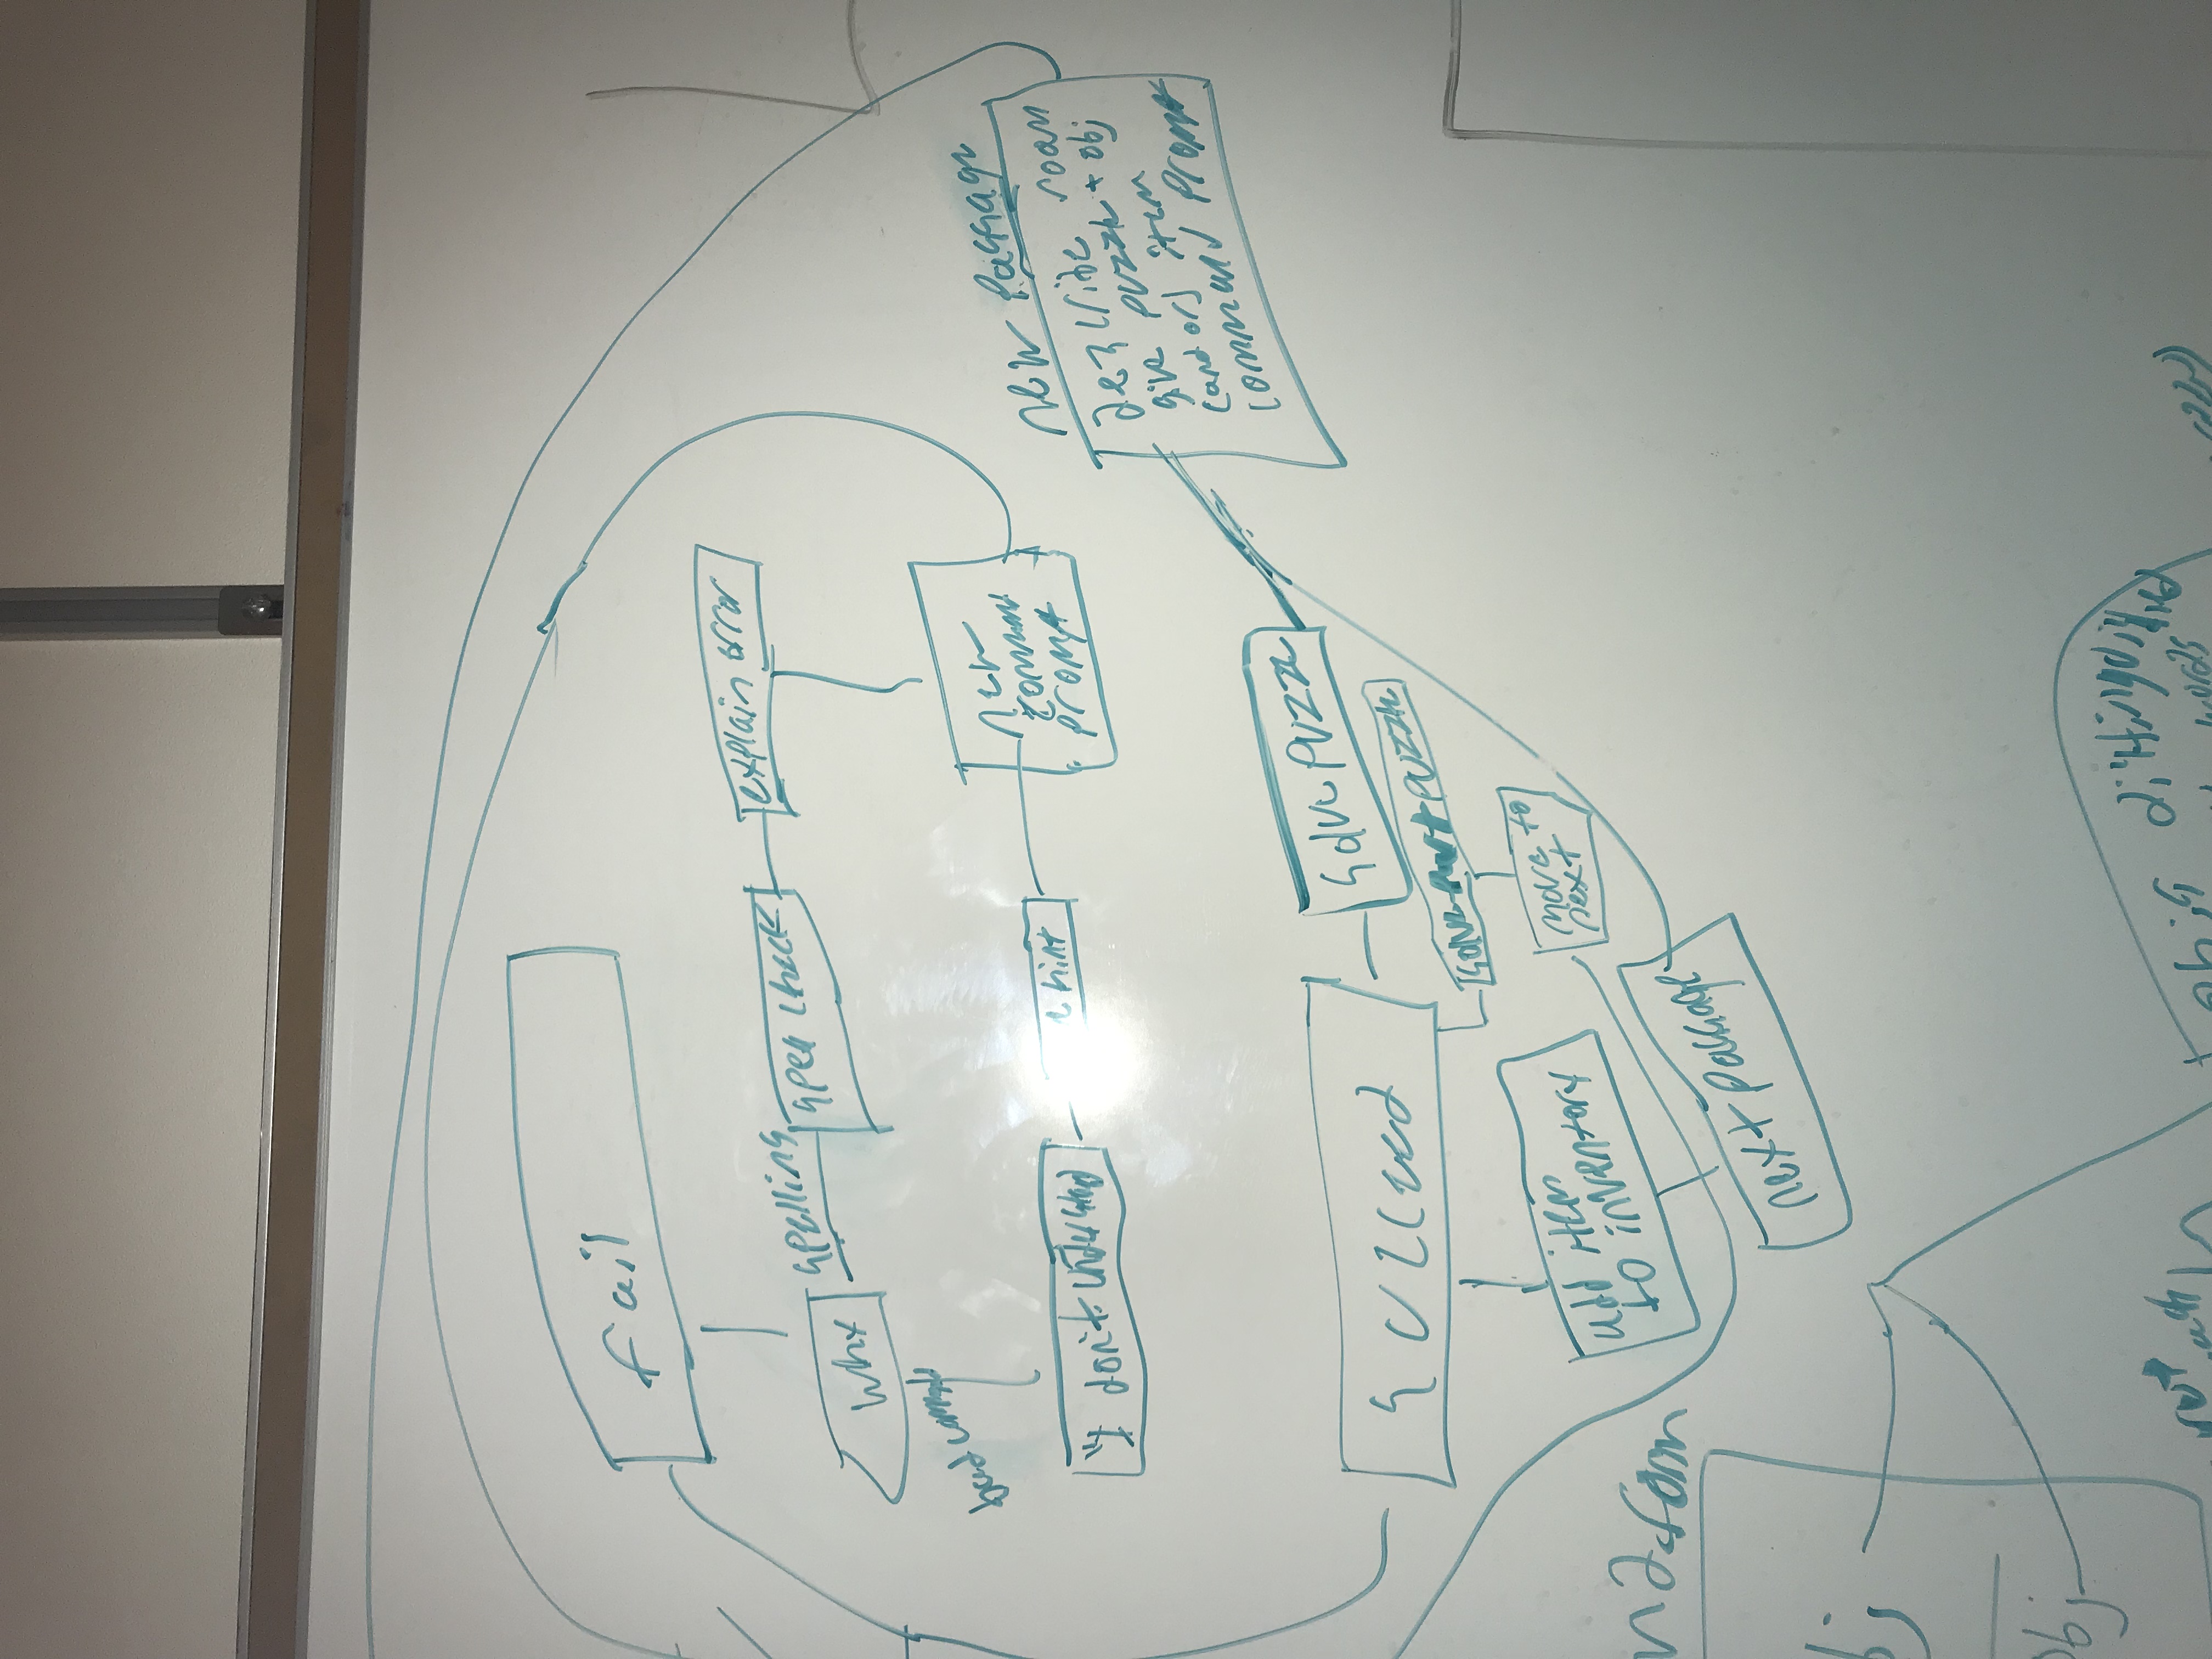 fail
why
spelling
spell check
explain error
bad command
"I don't understand
hint
new
command
prompt
new passage
describe room
give puzzle + obj
(and or) item
command prompt
succeed
solve puzzle
solve part puzzle
move to
next
add item
to inventory
next passage
form
obj
obj
distinguished
words